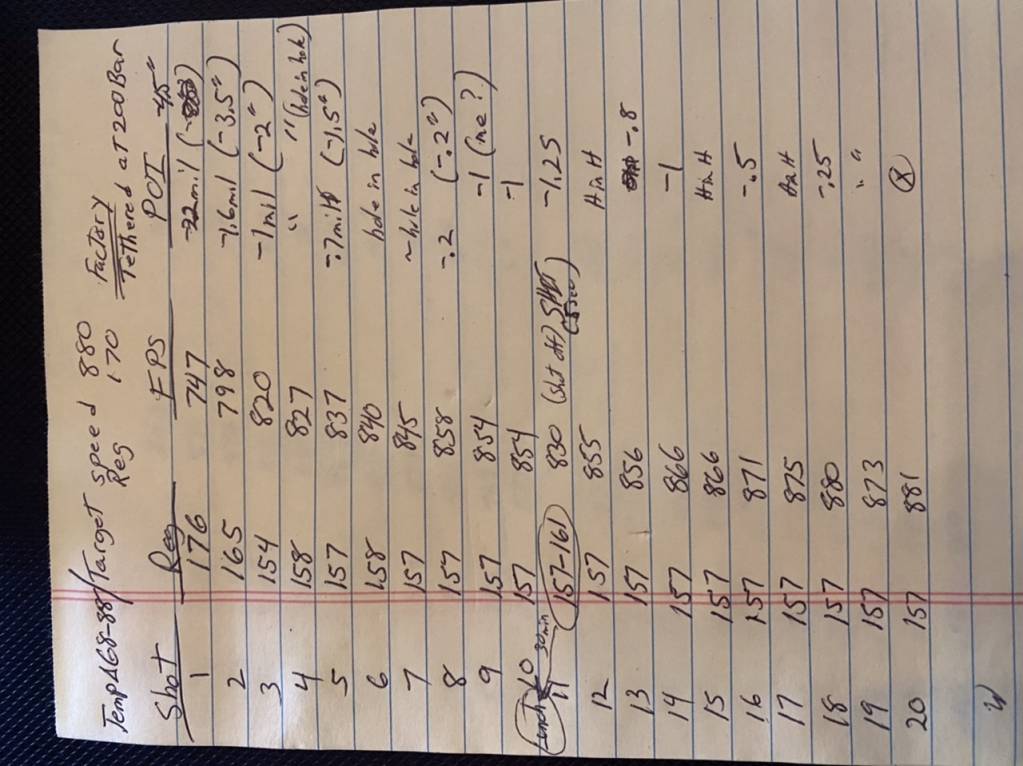 Temp ∆68-88/Target speed 880 Factory
Reg 170 Tethered at 200 Bar
Shot Reg FPS POI
1 176 747 -22mil -45"
2 165 798 -1.6mil (-3.5")
3 154 820 -1mil (-2")
4 158 827 " " (hole in hole)
5 157 837 -.7mil (-1.5")
6 158 840 hole in hole
7 157 845 ~hole in hole
8 157 858 -.2 (-.2")
9 157 854 -1 (me?)
10 157 854 -1
Lunch 30min 11 157-161 830 (shot off) -1.25
12 157 855 HinH
13 157 856 -.8
14 157 866 -1
15 157 866 HinH
16 157 871 -.5
17 157 875 HinH
18 157 880 -.25
19 157 873 " "
20 157 881 ⓧ